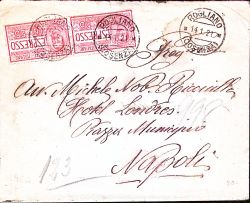 ESPRESSO
ESPRESSO
ROGLIANO
(COSENZA)
ROGLIANO
14.1.21
(COSENZA)
Michele Nob. Ricciulli
Hotel Londres
Piazza Municipio
Napoli
123